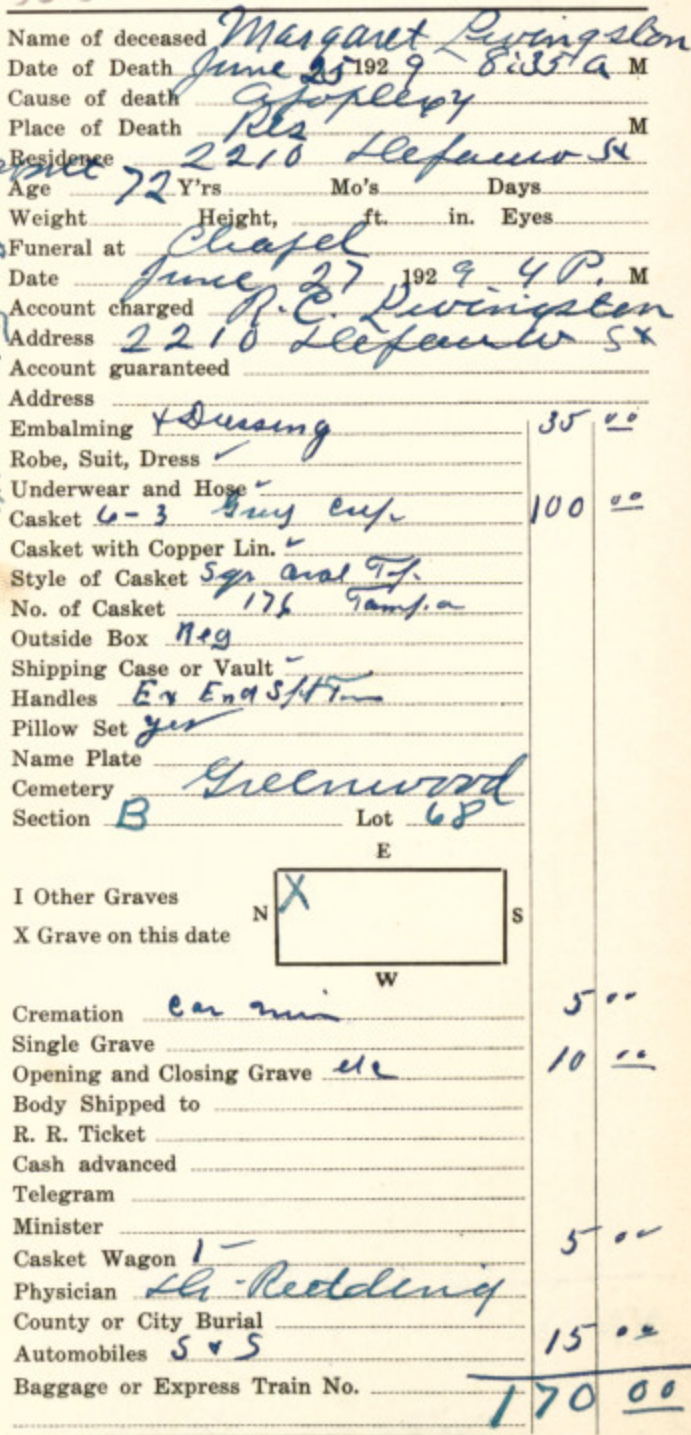 Name of deceased Margaret Livingston
Date of Death June 25 1929 8:35 a M
Cause of death apoplexy
Place of Death Res M
Residence 2210 St
Age 72 Y'rs Mo's Days
Weight Height, ft. in. Eyes
Funeral at Chapel
Date June 27 1929 4 P. M
Account charged R. C. Livingston
Address 2210 St
Account guaranteed
Address
Embalming + Dressing 35 00
Robe, Suit, Dress ✓
Underwear and Hose ✓
Casket 6-3 Grey 100 00
Casket with Copper Lin. ✓
Style of Casket Sqr
No. of Casket 176 Tampa
Outside Box Reg
Shipping Case or Vault
Handles Ex End
Pillow Set yes
Name Plate
Cemetery Greenwood
Section B Lot 68
E
I Other Graves
N X S
X Grave on this date
W
Cremation car 5 00
Single Grave
Opening and Closing Grave etc 10 00
Body Shipped to
R. R. Ticket
Cash advanced
Telegram
Minister
Casket Wagon 1 5 00
Physician Redding
County or City Burial
Automobiles S & S 15 00
Baggage or Express Train No. 170 00